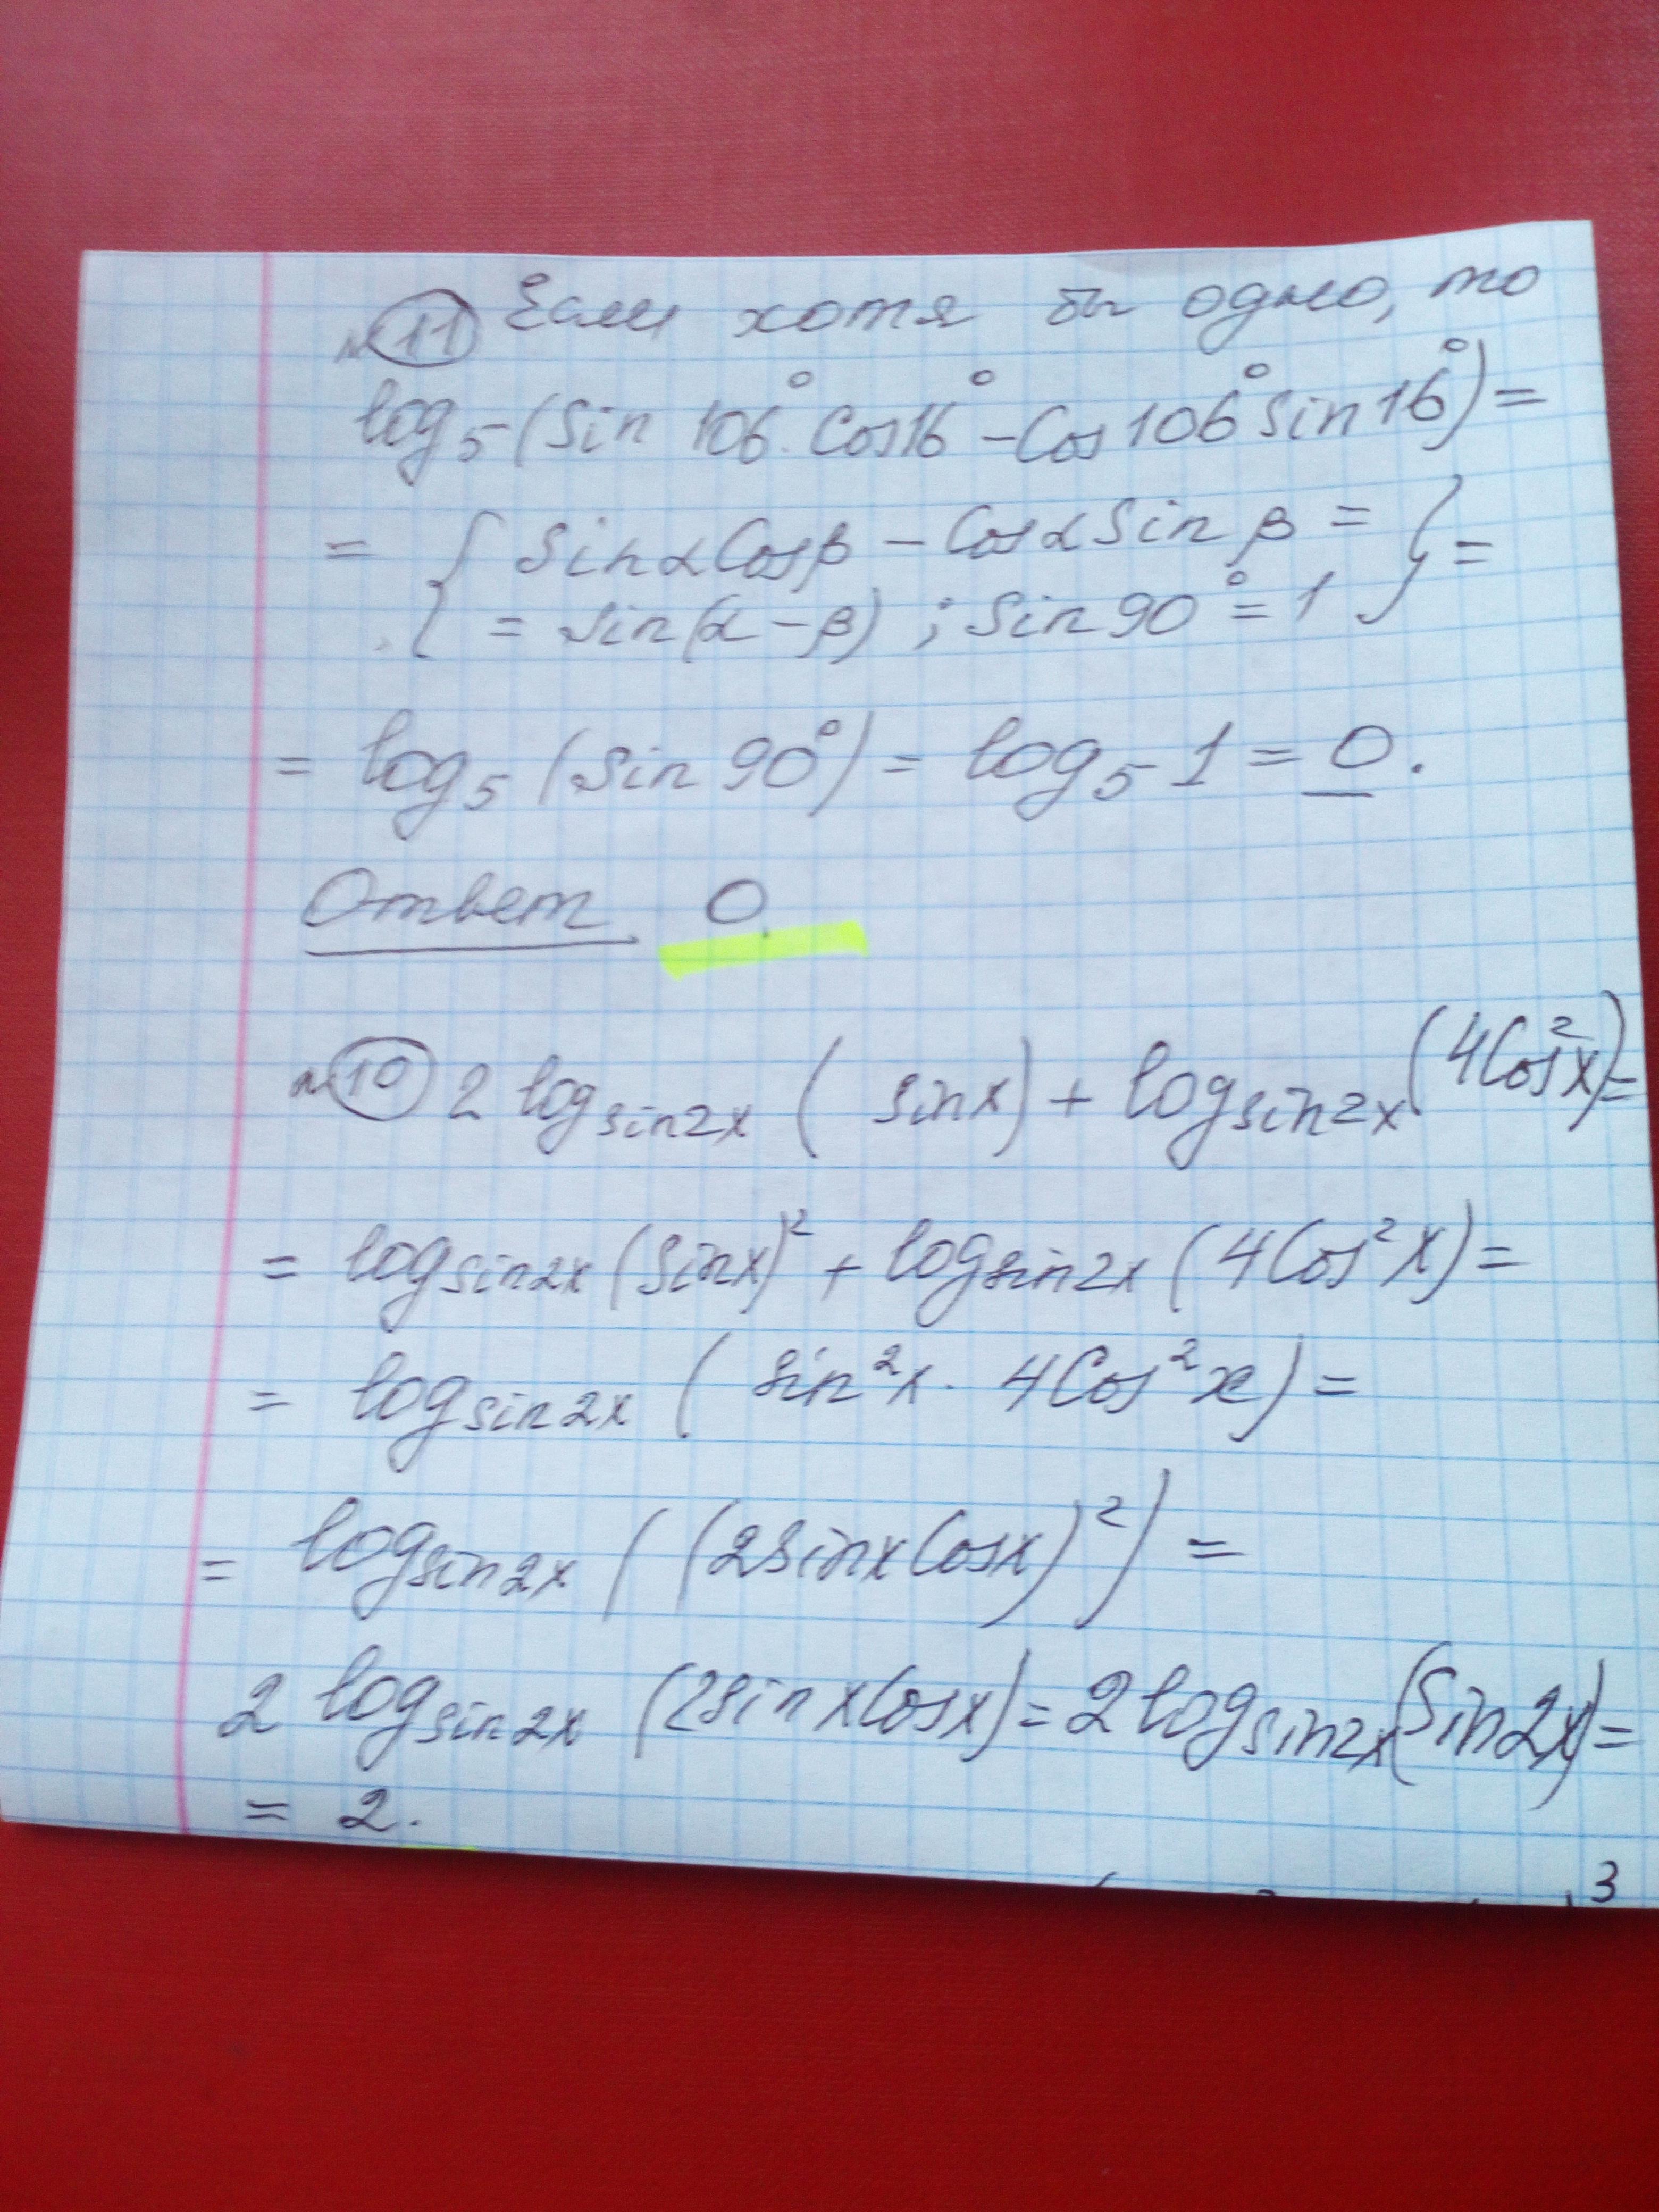 № 11 Если хотя бы одно, то
log₅(Sin 106°·Cos16° – Cos106° sin 16°) =
= { SinαCosβ – CosαSinβ =
= sin(α – β) ; Sin 90° = 1 } =
= log₅(sin 90°) = log₅ 1 = 0.
Ответ 0.
№ 10 2 log_sin2x ( sinx) + log_sin2x (4Cos²x) =
= log_sin2x (sinx)² + log_sin2x (4Cos²x) =
= log_sin2x ( sin²x · 4Cos²x) =
= log_sin2x ((2sinxCosx)²) =
2 log_sin2x (2sinxCosx) = 2 log_sin2x (Sin2x) =
= 2.
3